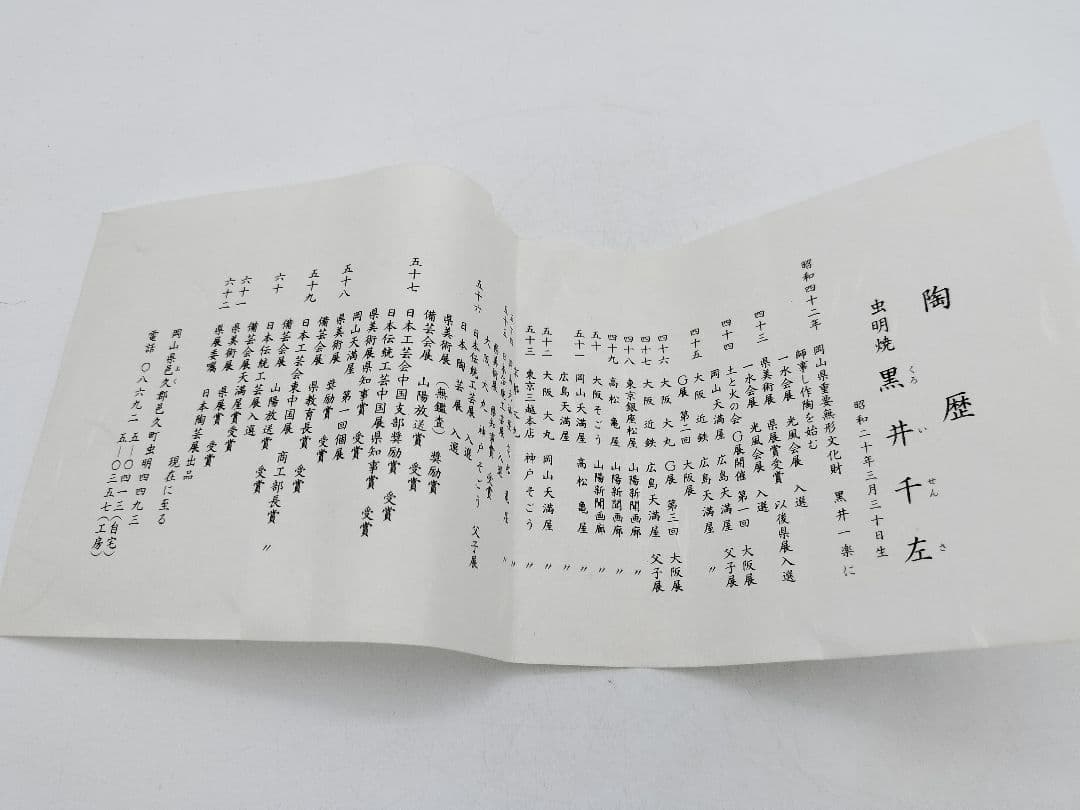 陶歴
虫明焼 黒井千左
くろ い せん さ
昭和二十年三月三十日生
昭和四十二年 岡山県重要無形文化財 黒井一楽に
師事し作陶を始む
一水会展 光風会展 入選
四十三 県美術展 県展賞受賞 以後県展入選
一水会展 光風会展 入選
四十四 土と火の会 G展開催 第一回 大阪展
岡山天満屋 広島天満屋 父子展
四十五 大阪 近鉄 広島天満屋 〃
G展 第二回 大阪展
四十六 大阪 大丸 G展 第三回 大阪展
四十七 大阪 近鉄 広島天満屋 父子展
四十八 東京銀座松屋 山陽新聞画廊 〃
四十九 高松 亀屋 山陽新聞画廊 〃
五十 大阪そごう 山陽新聞画廊 〃
五十一 岡山天満屋 高松 亀屋 〃
広島天満屋 〃
五十二 大阪 大丸 岡山天満屋 〃
五十三 東京三越本店 神戸そごう 〃
大阪 大丸 神戸そごう 父子展
五十六 日本伝統工芸展 入選
日本陶芸展 入選
県美術展 (無鑑査) 奨励賞
備芸会展 山陽放送賞 受賞
五十七 日本工芸会中国支部奨励賞 受賞
日本伝統工芸中国展県知事賞 受賞
県美術展県知事賞 受賞
岡山天満屋 第一回個展
五十八 県美術展 奨励賞 受賞
備芸会展 県教育長賞 受賞
五十九 日本工芸会東中国展 受賞
備芸会展 商工部長賞 〃
六十 日本伝統工芸展 山陽放送賞 受賞
備芸会展天満屋賞 入選
六十一 県美術展 県展賞 受賞
六十二 県展委嘱 日本陶芸展出品
現在に至る
岡山県邑久郡邑久町虫明四四九三
電話 〇八六九二 五―〇四一三(自宅)
五―〇三五七(工房)